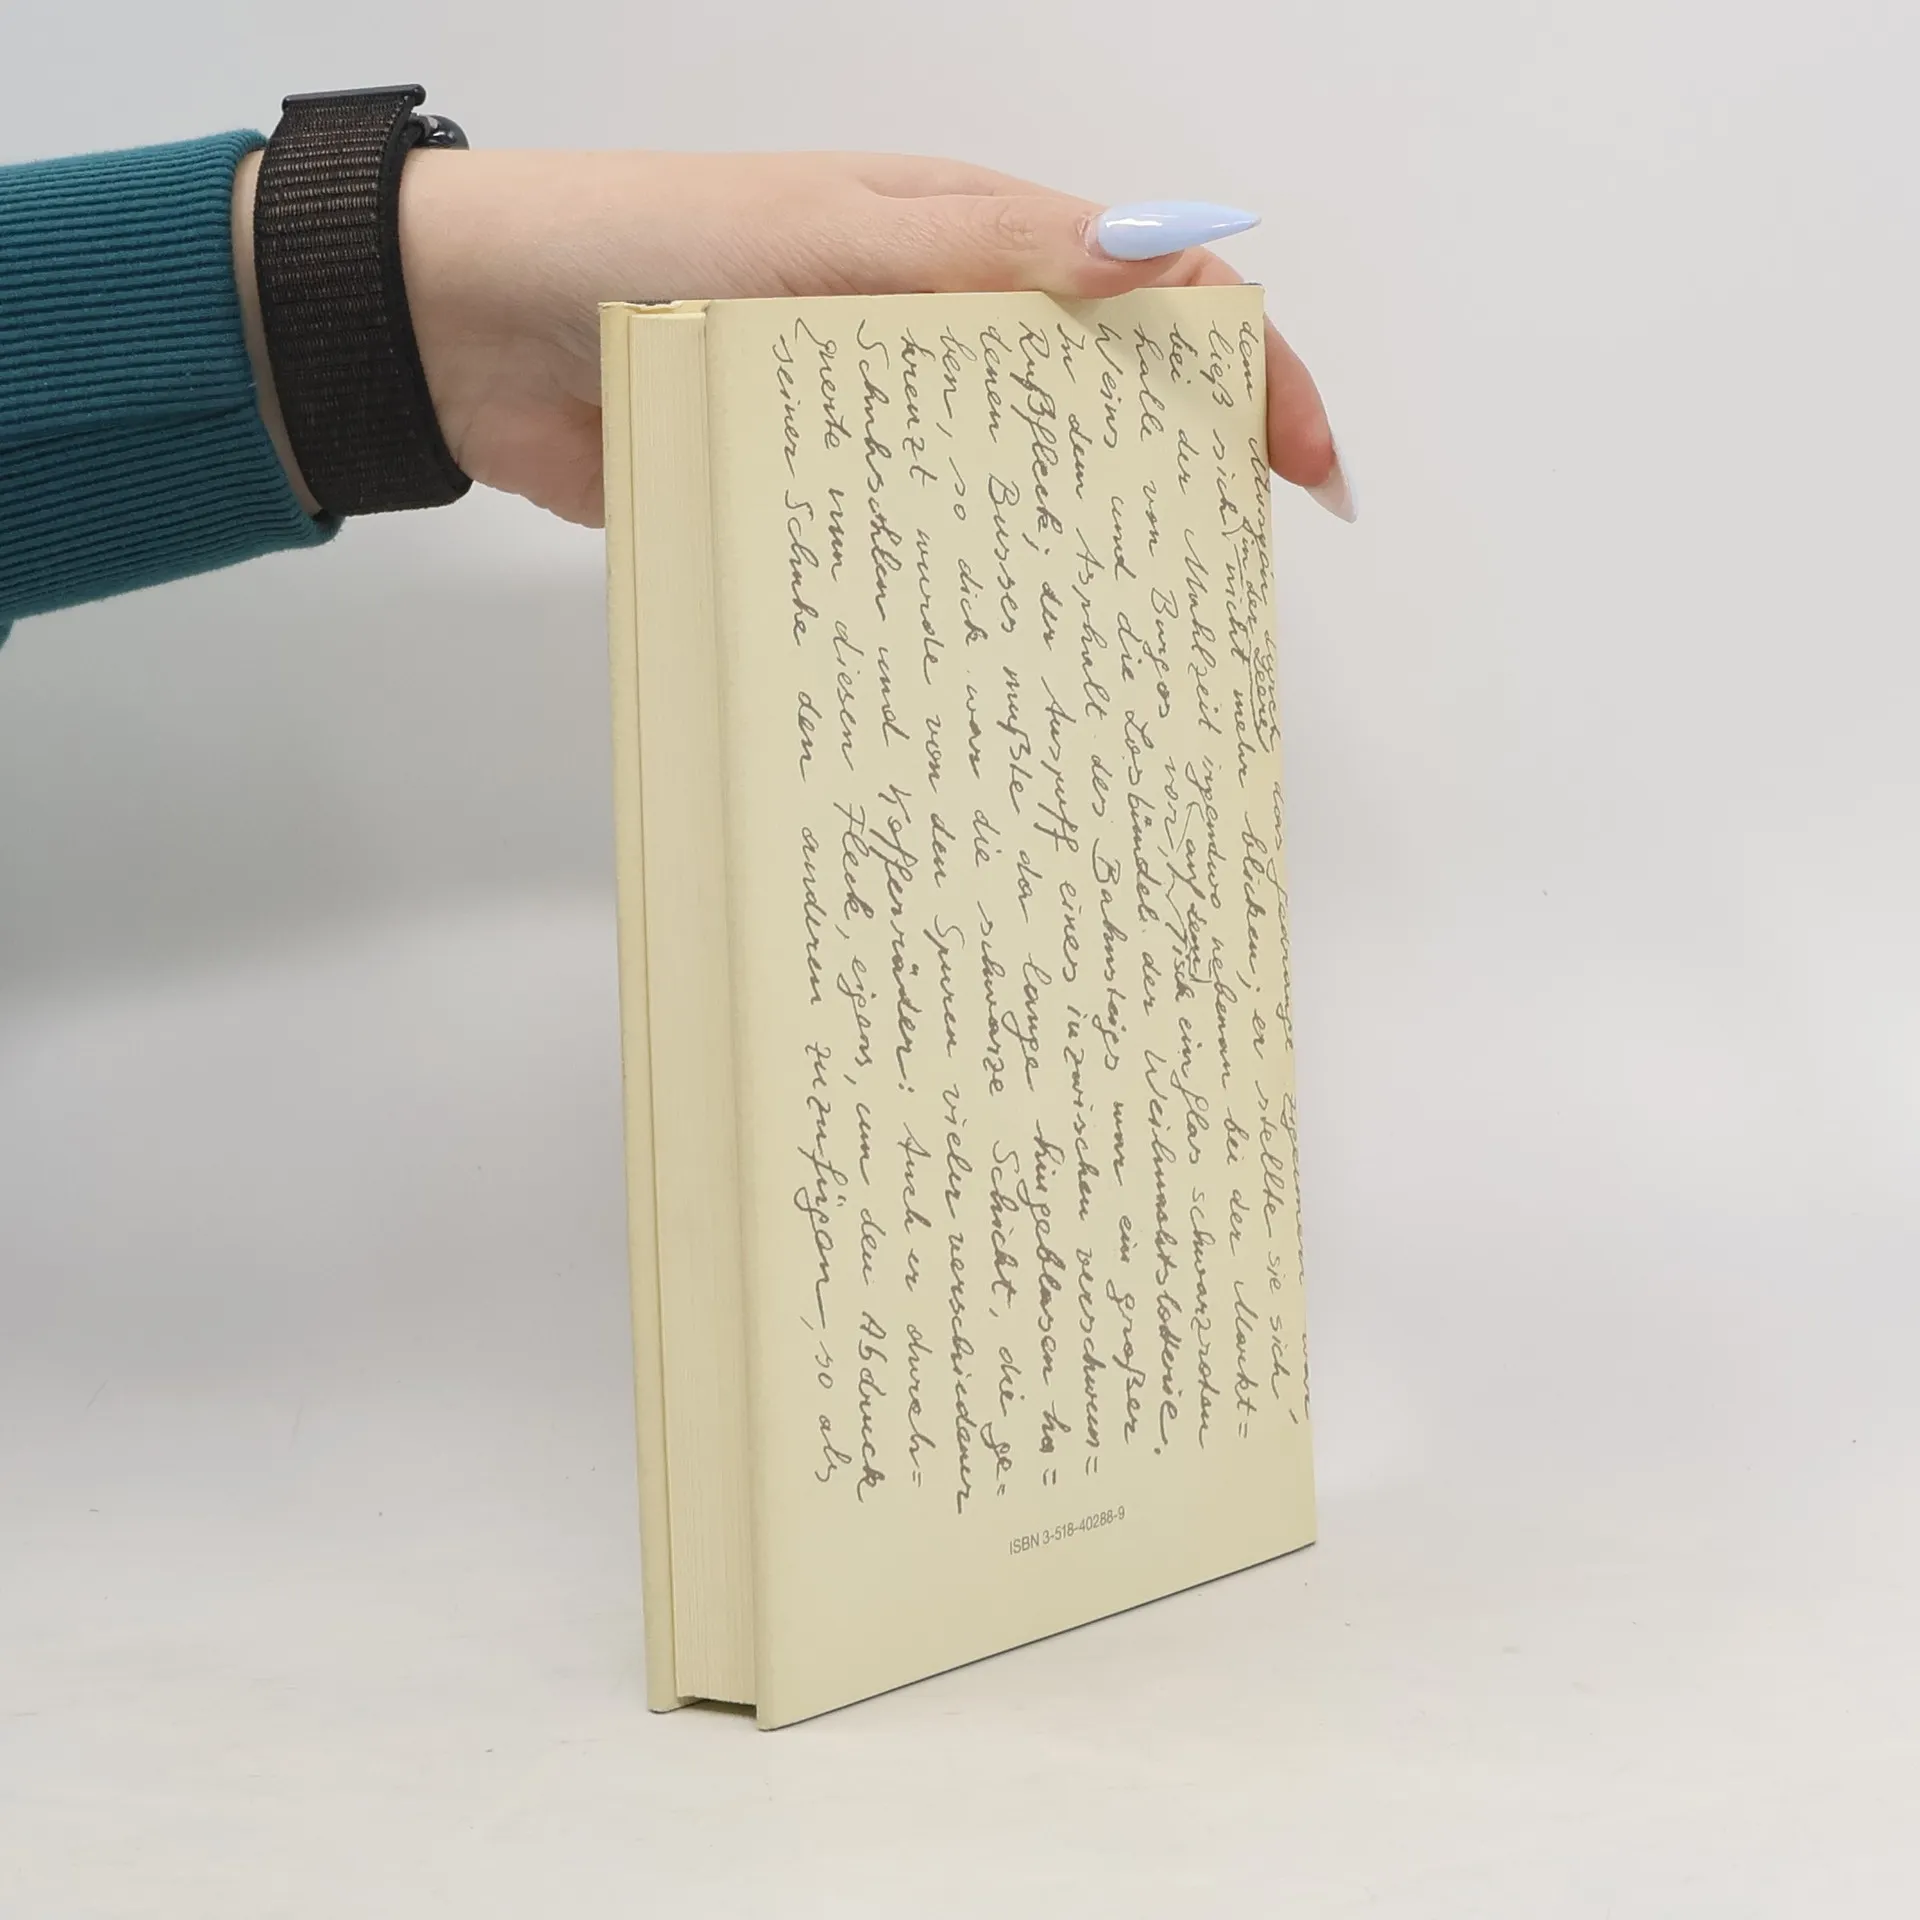 dem das Gedränge
ließ sich in der Leere nicht mehr blicken; er stellte sie sich
bei der Mahlzeit irgendwo nebenan bei der Markt=
halle von Burgos vor, auf dem Tisch ein Glas schwarzroten
Weins und die Losbündel der Weihnachtslotterie.
In dem Asphalt des Bahnsteigs war ein großer
Rußfleck; der Auspuff eines inzwischen verschwun=
denen Busses mußte da lange hingeblasen ha=
ben, so dick war die schwarze Schicht, die ge=
kreuzt wurde von den Spuren vieler verschiedener
Schuhsohlen und Kofferräder: Auch er durch=
querte nun diesen Fleck, eigens, um den Abdruck
seiner Schuhe den anderen zuzufügen, so als
ISBN 3-518-40288-9